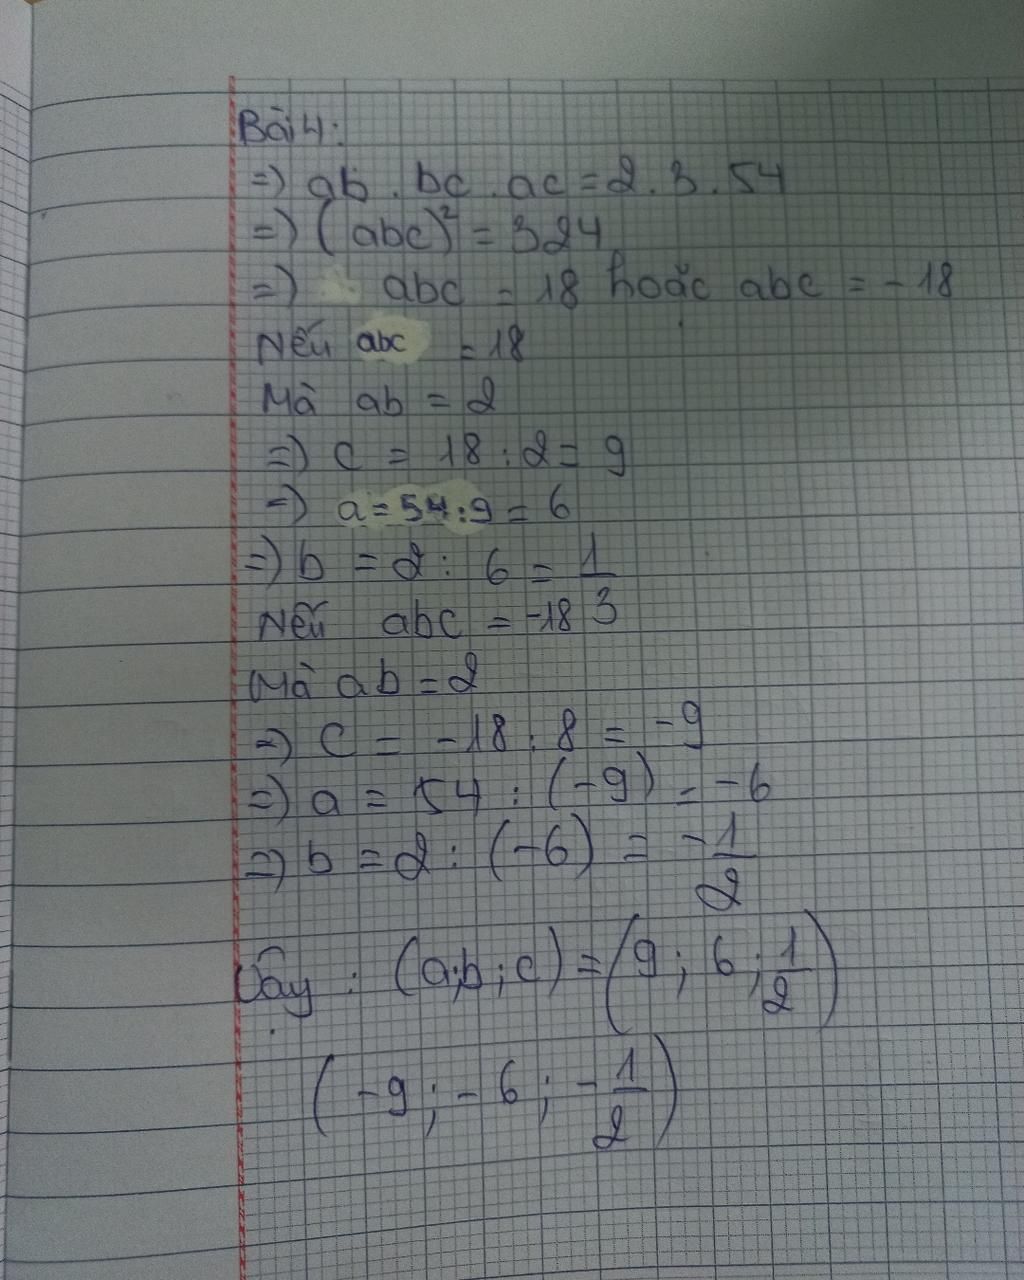 Bài 4:
=) ab . bc . ac = 2 . 3 . 54
=) (abc)² = 324
=) abc = 18 hoặc abc = -18
Nếu abc = 18
Mà ab = 2
=) c = 18 : 2 = 9
=) a = 54 : 9 = 6
=) b = 2 : 6 = 1/3
Nếu abc = -18
Mà ab = 2
=) c = -18 : 8 = -9
=) a = 54 : (-9) = -6
=) b = 2 : (-6) = -1/2
Vậy : (a;b;c) = (9 ; 6 ; 1/2)
(-9 ; -6 ; -1/2)